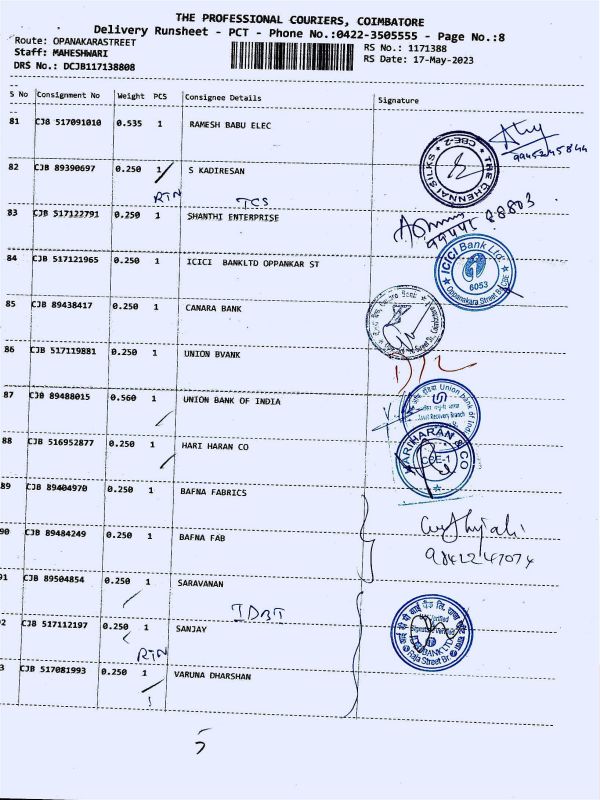 THE PROFESSIONAL COURIERS, COIMBATORE
Delivery Runsheet - PCT - Phone No.:0422-3505555 - Page No.:8
Route: OPANAKARASTREET RS No.: 1171388
Staff: MAHESHWARI RS Date: 17-May-2023
DRS No.: DCJB117138808
S No Consignment No Weight PCS Consignee Details Signature
81 CJB 517091010 0.535 1 RAMESH BABU ELEC
CBE-2
THE CHENNAI SILKS
82 CJB 89390697 0.250 1 S KADIRESAN
RTN TCS
83 CJB 517122791 0.250 1 SHANTHI ENTERPRISE
84 CJB 517121965 0.250 1 ICICI BANKLTD OPPANKAR ST
ICICI Bank Ltd.
6053
Oppanakara Street Br CBE
85 CJB 89438417 0.250 1 CANARA BANK
86 CJB 517119881 0.250 1 UNION BVANK
87 CJB 89488015 0.560 1 UNION BANK OF INDIA
Union Bank of India
88 CJB 516952877 0.250 1 HARI HARAN CO
HARIHARAN & CO
CBE-1
89 CJB 89404970 0.250 1 BAFNA FABRICS
90 CJB 89484249 0.250 1 BAFNA FAB
9842247074
91 CJB 89504854 0.250 1 SARAVANAN
IDBI
2 CJB 517112197 0.250 1 SANJAY
IDBI BANK LTD
Raja Street Br
RTN
3 CJB 517081993 0.250 1 VARUNA DHARSHAN